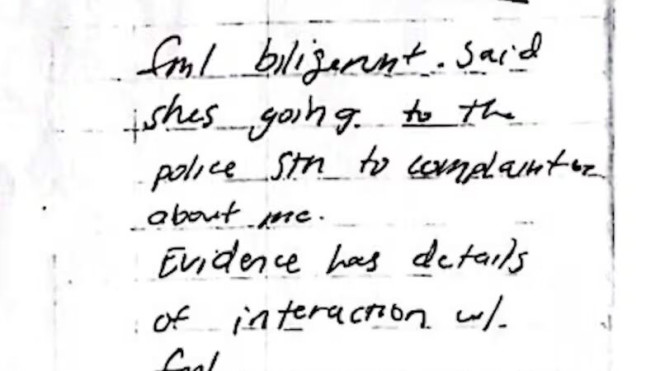 fml biligerent. Said
shes going to the
police stn to complain
about me.
Evidence has details
of interaction w/.
fml